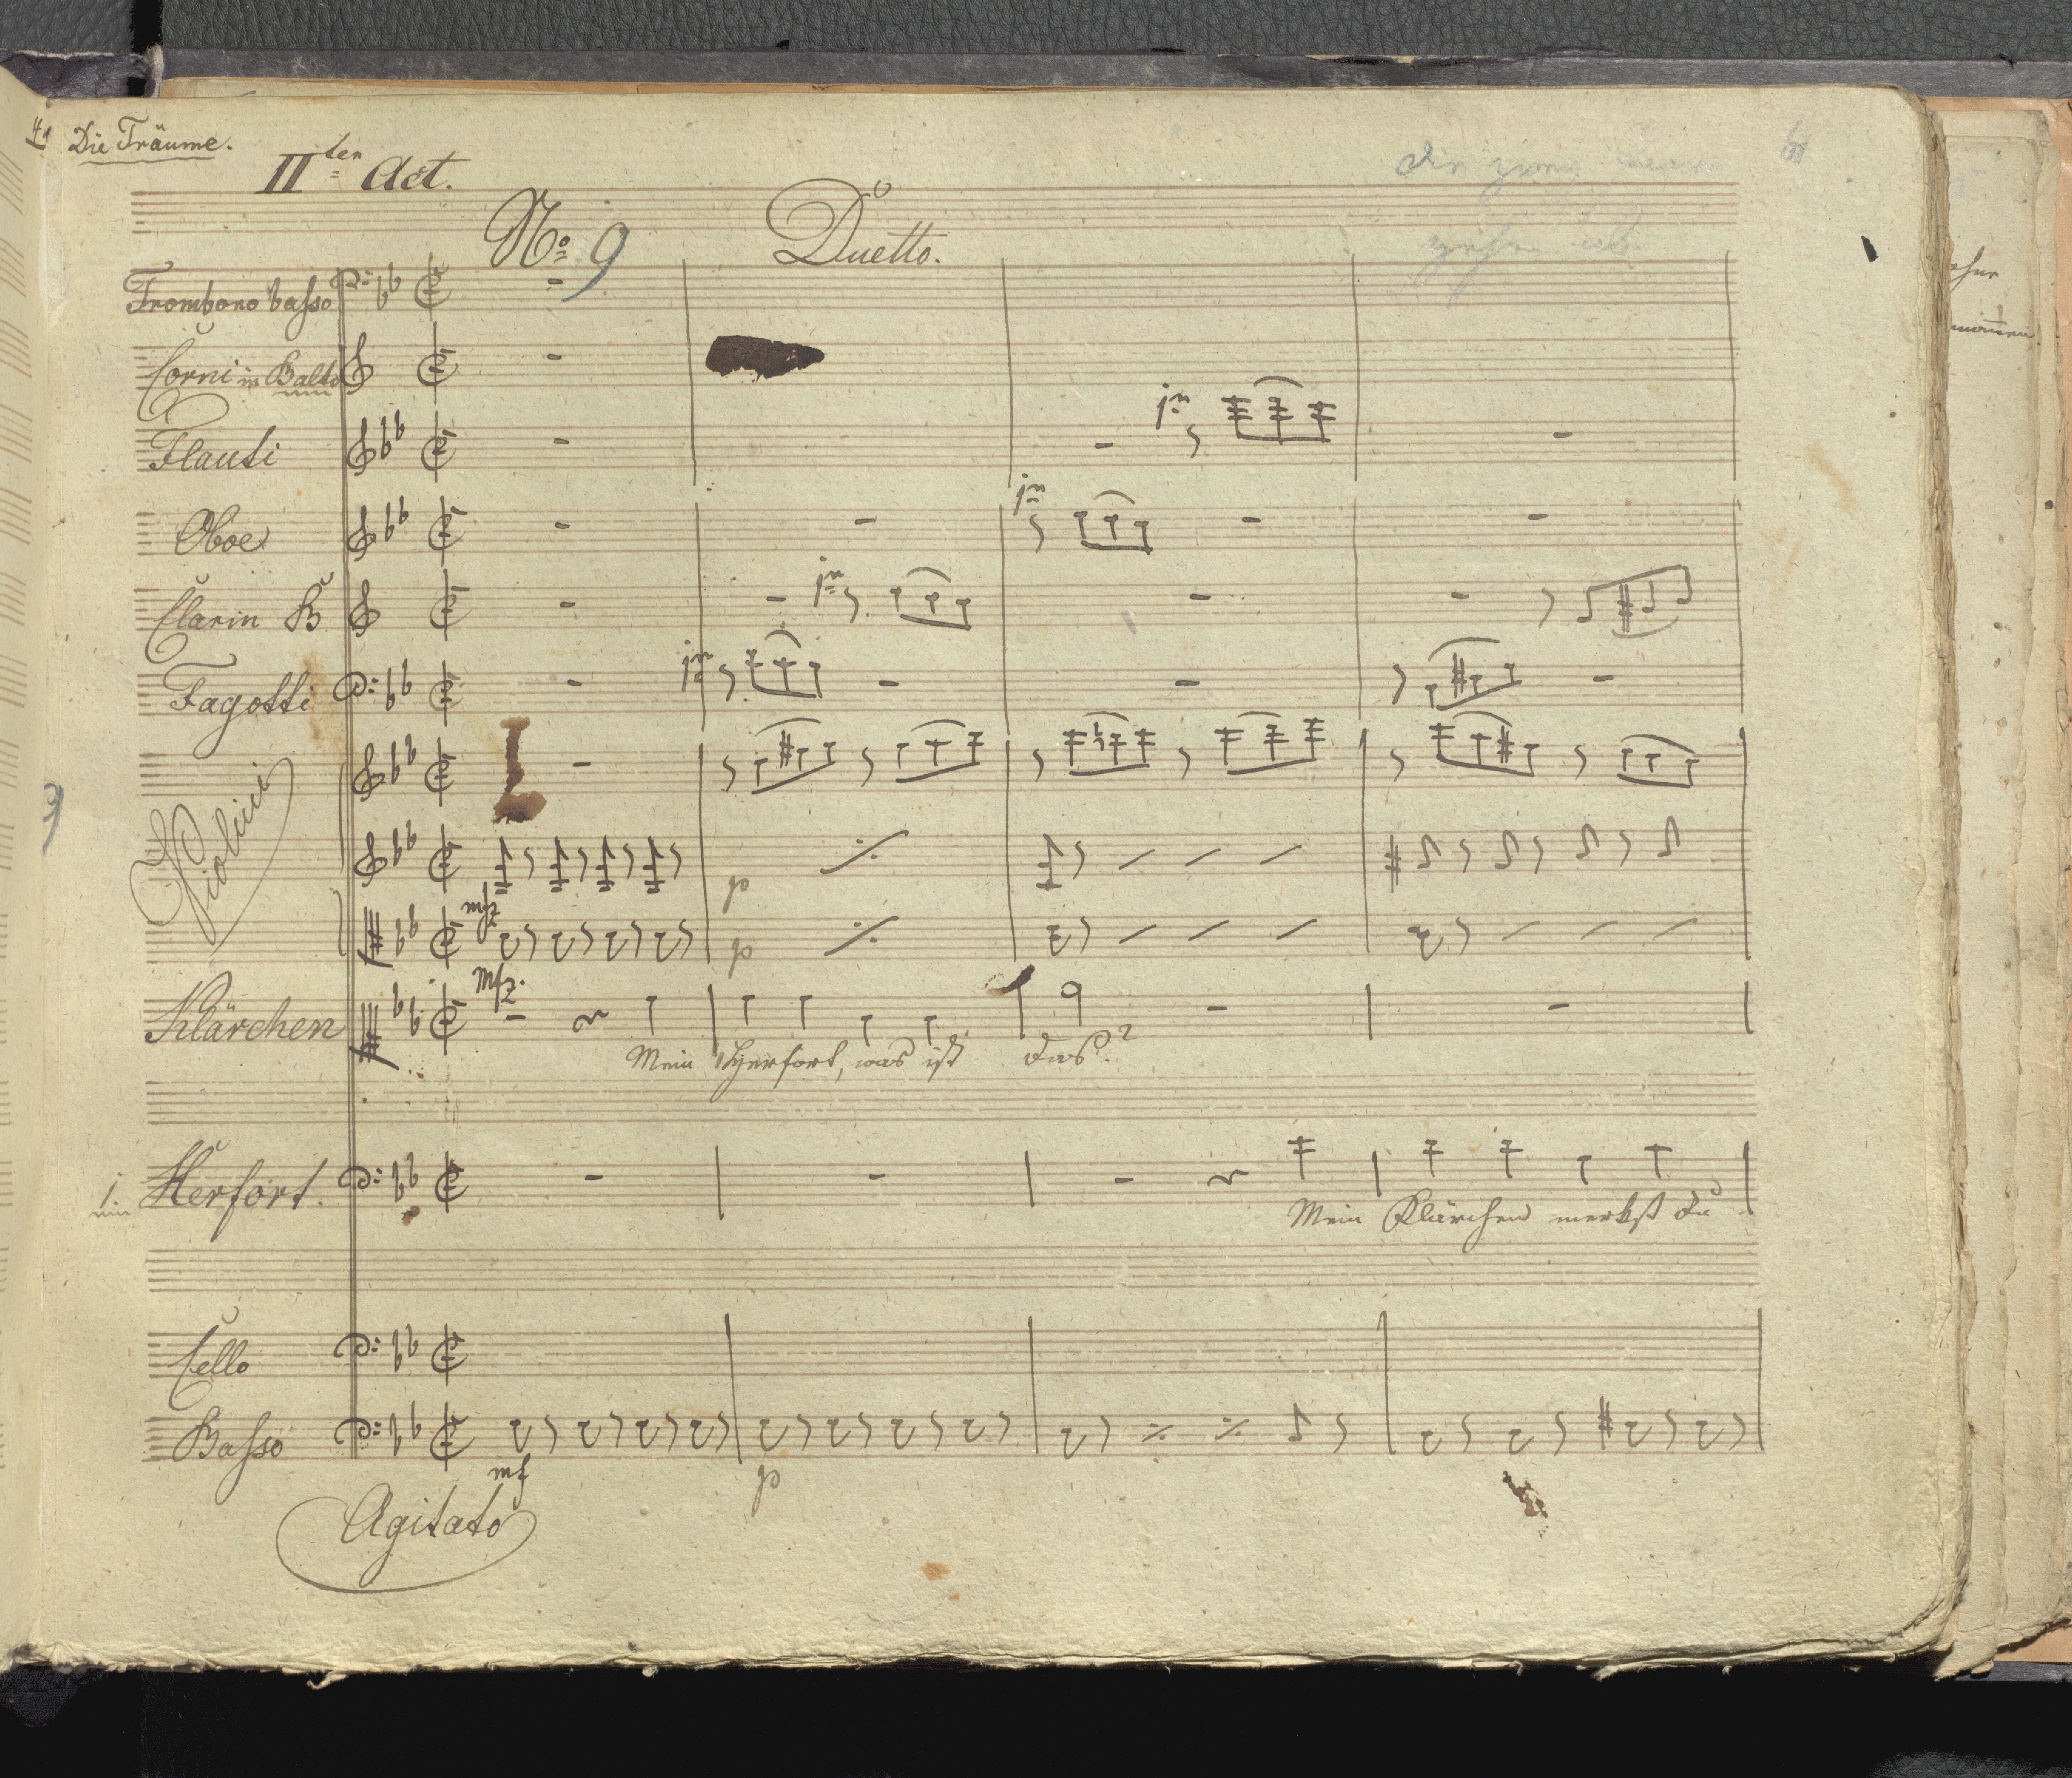 Die Träume.
IIter Act.
No 9 Duetto.
Trombono basso
Corni in B alto
Flauti
1mo
Oboe
1mo
Clarin B
1mo
Fagotti
1mo
Violini
p
mfz
p
mfz.
Klärchen
Mein Herfort, was ist das?
1. Herfort.
Mein Klärchen merkst du
Cello
Basso
mf p
Agitato